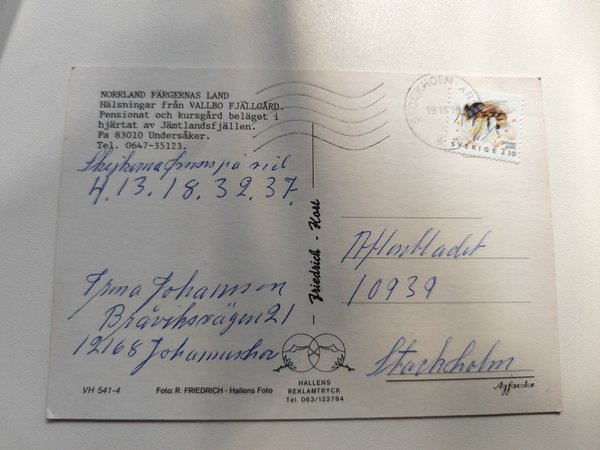 NORRLAND FÄRGERNAS LAND
Hälsningar från VALLBO FJÄLLGÅRD.
Pensionat och kursgård beläget i
hjärtat av Jämtlandsfjällen.
Pa 83010 Undersåker.
Tel. 0647-35123.
på sid
4, 13, 18, 32, 37,
Irma Johansson
Bråviksvägen 21
12168 Johanneshov
VH 541-4
Foto: R. FRIEDRICH - Hallens Foto
Friedrich - Kort
HALLENS
REKLAMTRYCK
Tel. 063/122764
STOCKHOLM
19.11.90
SVERIGE 2.30
Aftonbladet
10939
Stockholm
Agfacolor